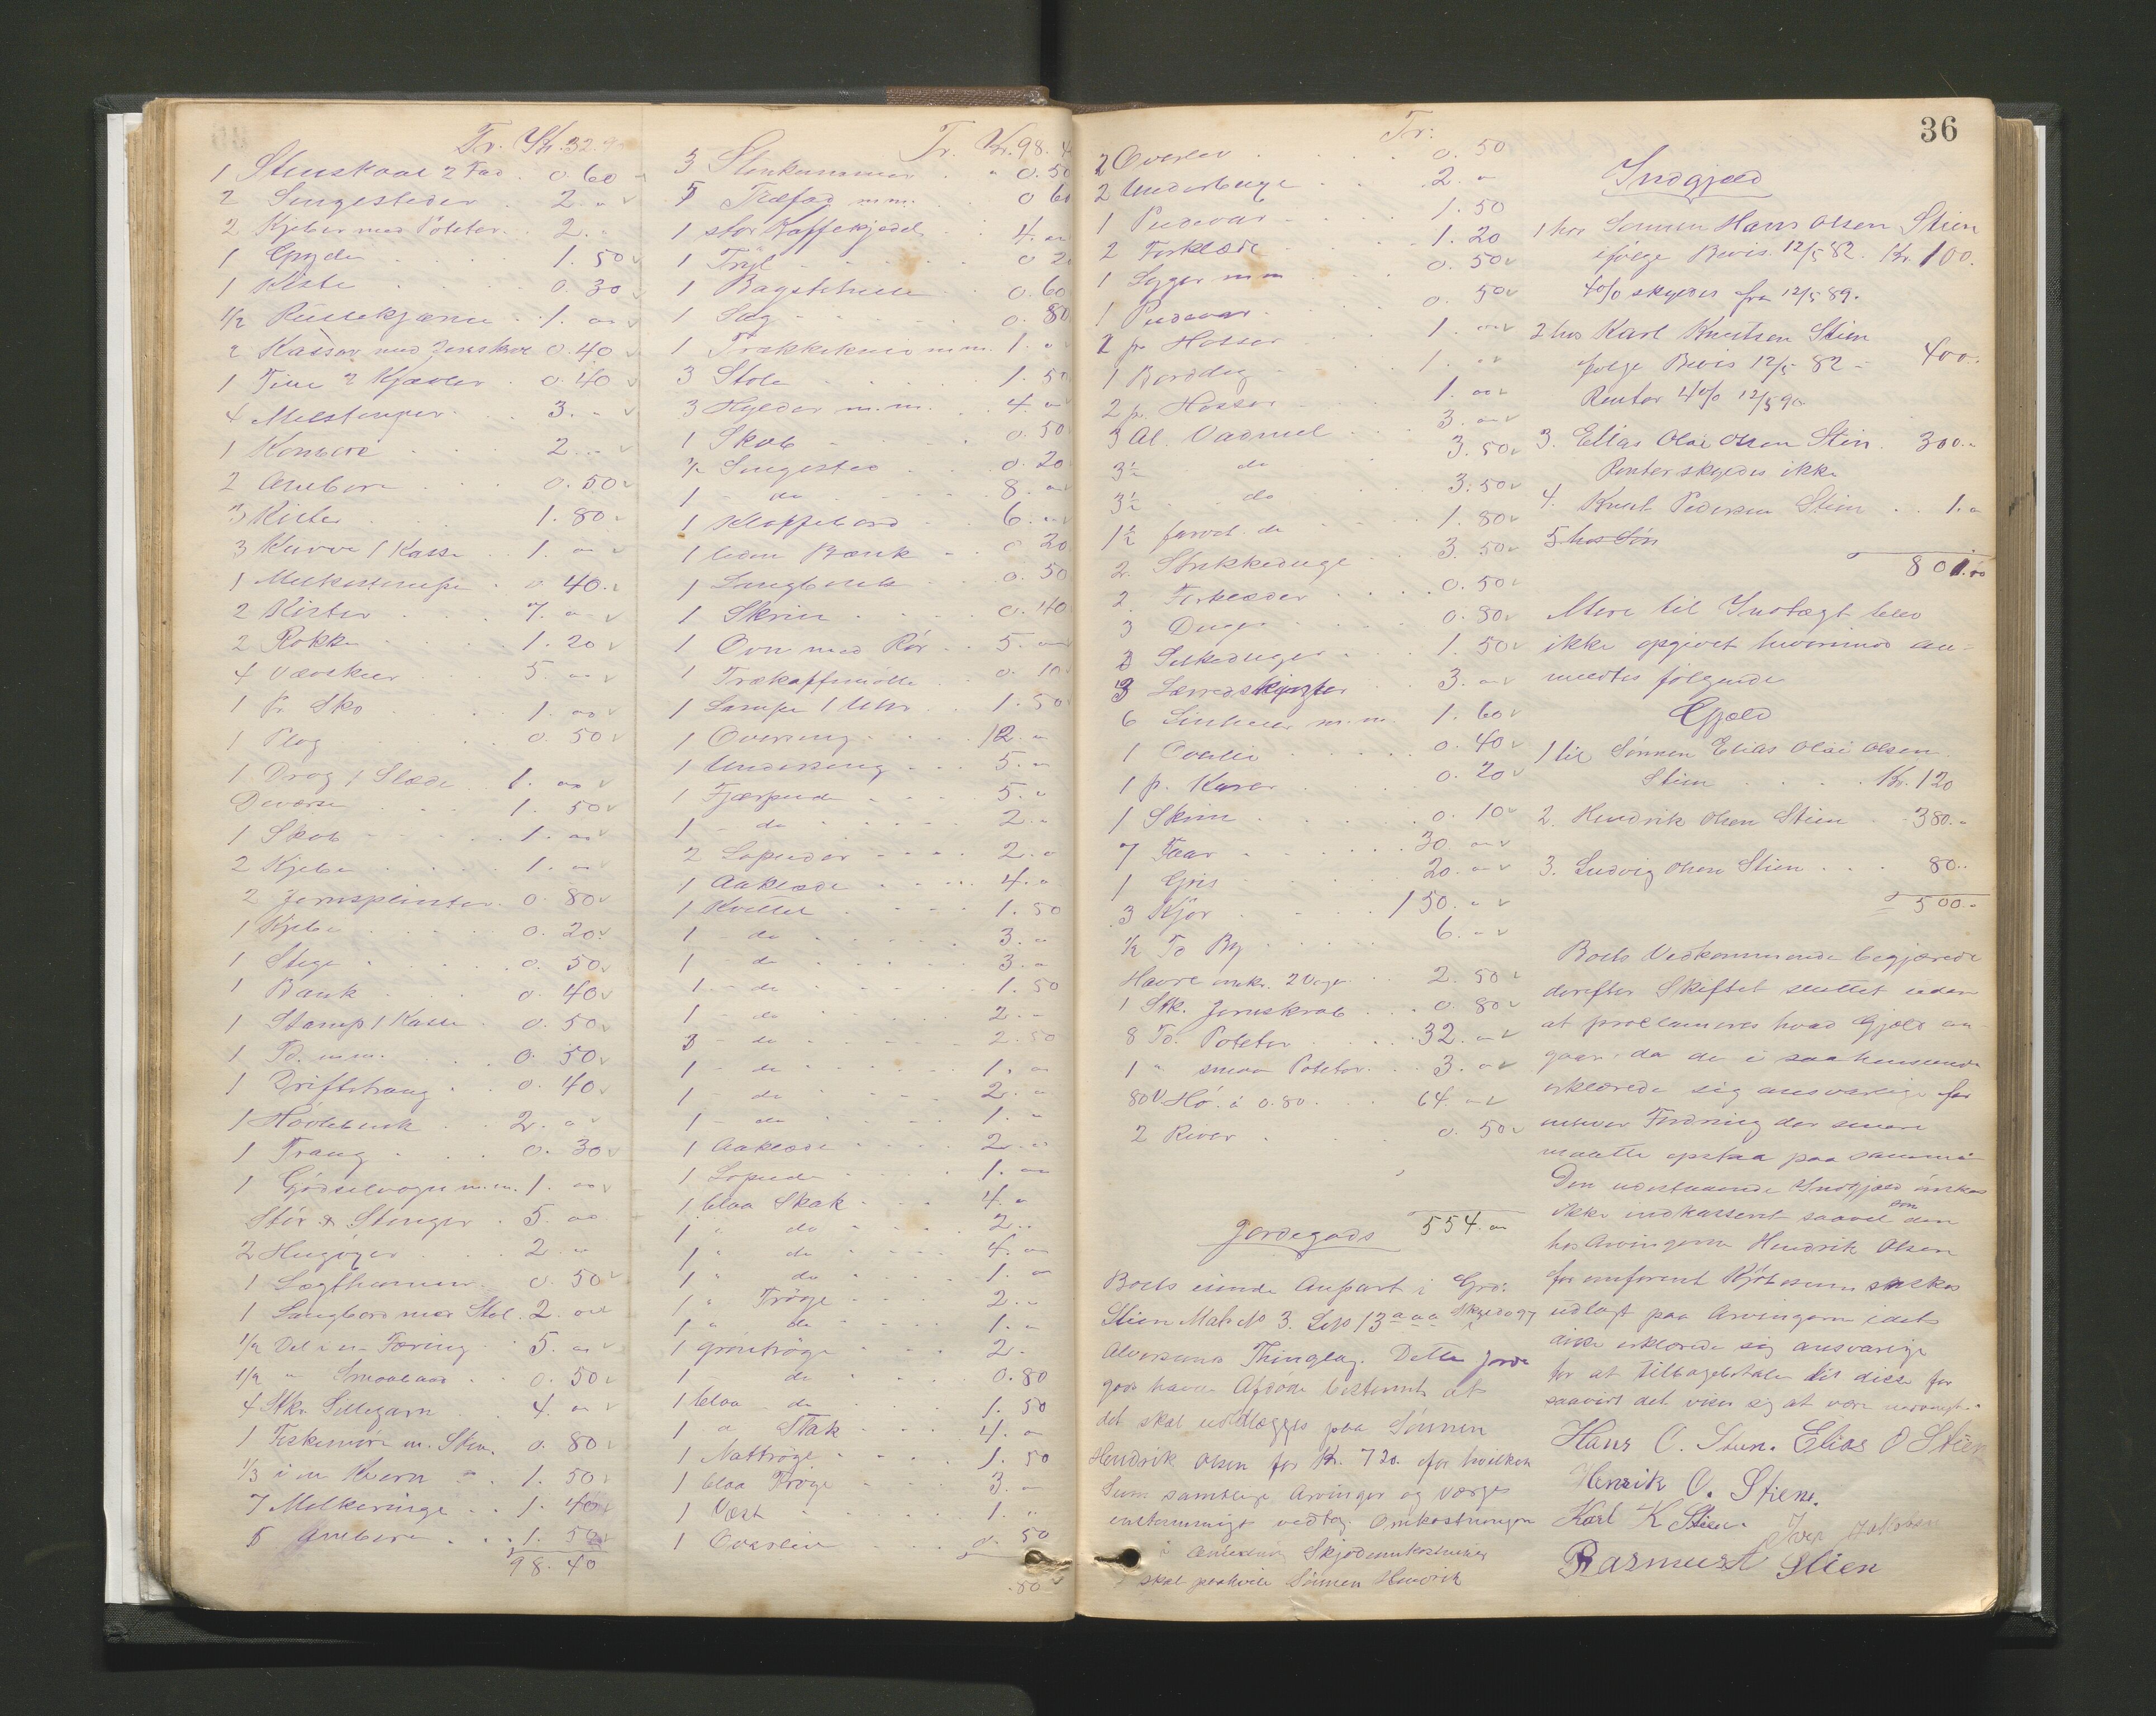 Tr. Kr. 32.90
1 Stenskaal 2 Fad . 0. 60
2 Sengesteder . 2. "
2 Kjeber med Poteter . 2. "
1 Gryde . . 1. 50
1 Kiste . . 0. 30
1/2 . 1. "
2 Kasser med Jernskrab 0. 40
1 Tine 2 Kjævler . 0. 40
4 Melstamper . . 3. "
1 . . 2. "
2 Ambere . . 0. 50
3 Kister . . 1. 80
3 Kurve 1 Kasse . 1. "
1 Melkestampe . 0. 40
2 Kister . . 7. "
2 Rokke . . 1. 20
4 Vævskeer . . 5. "
1 Pr Sko . . 1. "
1 Plog . . 0. 50
1 Drog 1 Slæde . 1. "
Diverse . . 1. 50
1 Skab . . 1. "
2 Kjeber . . 1. "
2 Jernsplinter . 0. 80
1 Kjebe . . 0. 20
1 Stige . . 0. 50
1 Bænk . . 0. 40
1 Stamp 1 Kasse . 0. 50
1 Td. m.m. . . 0. 50
1 Driftetraug . 0. 40
1 Høvlebænk . 2. "
1 Traug . . 0. 30
1 Gjødselvogn m.m. 1. "
Stör & Stenger . 5. "
2 . . 2. "
1 Lægthammer . 0. 50
1 Langbord med Stol . 2. "
1/2 Del i en Færing . 5. "
1/2 " Smaabaad . 0. 50
4 Stkr Sildegarn . 4. "
1 Fiskesnøre m. Sten . 0. 80
1/3 i en Kværn . 1. 50
7 Melkeringe . . 1. 40
5 Ambere . . 1. 50
98. 40
Tr. Kr. 98. 4
3 Stenkummer . " 0. 50
5 Træfad m.m. . 0 60
1 stor Kaffekjedel . 4. "
1 Tryl . . 0 2
1 Bagstehelle . 0. 60
1 Sag . . 0. 80
1 Trækkekniv m.m. 1. "
3 Stole . . 1. 50
3 Hylder m.m. . 4. "
1 Skab . . 0. 50
1/2 Sengested . . 0. 20
1 - do . . 8. "
1 Klappebord . 6. "
1 liden Bænk . 0 20
1 Langbænk . 0. 50
1 Skrin . . 0. 40
1 Ovn med Rör . 5. "
1 Trækaffemølle . 0. 10
1 Lampe 1 Uhr . 1. 50
1 Overseng . . 12. "
1 Underseng . . 5. "
1 Fjærpude . . 5. "
1 - do . . 2. "
2 Lopuder . . 2. "
1 Aaklæde . . 4. "
1 Kvittel . . 1. 50
1 - do . . 3. "
1 - do . . 3. "
1 - do . . 1. 50
1 - do . . 2. "
3 - do . . 2. 50
1 - do . . 1. "
1 - do . . 2. "
1 - do . . 1. "
1 Aaklæde . . 2. "
1 Lopude . . 1. "
1 blaa Stak . . 4. "
1 " do . . 2. "
1 " do . . 4. "
1 " do . . 1. "
1 " Tröge . . 2. "
1 " do . . 1. "
1 grøn tröge . . 2. "
1 - do . . 0. 80
1 blaa do . . 1. 50
1 " Stak . . 4. "
1 Nattröge . . 1. 50
1 blaa Tröge . . 3. "
1 Vest . . 1. "
1 Overliv . . 0. 50
.50
Tr:
36
2 Overliv . . 0. 50
2 Underbuxe . . 2. "
1 Pudevar . . 1. 50
2 Forklæde . . 1. 20
1 m m . . 0. 50
1 Pudevar . . 0. 50
2 p. Hosser . . 1. "
1 Borddug . . 1. "
2 p. Hosser . . 1. "
3 Al. Vadmel . . 3. "
3½ do . . 3. 50
3½ do . . 3. 50
1½ farvet do . . 1. 80
2 Strikkeduge . . 3. 50
2 Forklæder . . 0. 50
3 Duge . . 0. 30
3 Silkeduger . . 1. 50
3 Lærredskjorter . 3. "
6 Linhuer m.m. . 1. 60
1 Overliv . . 0. 40
1 p. Karer . . 0. 20
1 Skrin . . 0. 10
7 Faar . . 30. "
1 Gris . . 20. "
3 Kjør . . 150. "
1/2 To Byg . . 6. "
Havre omkr. 2 Voger . 2. 50
1 Stk. Jernskrab . . 0. 80
8 To. Poteter . . 32. "
1 " smaa Poteter . . 3. "
80 V Hö à 0.80 . . 64. "
2 River . . 0. 50
Jordegods 554. "
Boets eiende Anpart i Grd:
Stien Mat No 3. Lno 13 a a a Skyld 0 97
Alversunds Thinglag. Dette Jorde
gods havde Afdøde bestemt at
det skal udlægges paa Sønnen
Hendrik Olsen for Kr. 720. for hvilken
Sum samtlige Arvinger og værge
enstemmigt vedtog. Omkostningen
i Anledning Skjødeomkostninger
skal paahvile Sønnen Hendrik
Indgjæld
1 hos Sønnen Hans Olsen Stien
ifølge Bevis 12/5 82. Kr. 100.
4% skyldes fra 12/5 89.
2 hos Karl Knutsen Stien
følge Bevis 12/5 82 - 400.
Renter 4% 12/5 90
3. Elias Olai Olsen Stien . 300. "
Renter skyldes ikke
4. Knut Pedersen Stien . . 1. "
5 hos Søn
801. 00
Mere til Indtægt blev
ikke opgivet hvorimod an-
meldtes følgende
Gjæld
1 til Sønnen Elias Olai Olsen
Stien . . Kr. 120
2. Hendrik Olsen Stien . 380. "
3. Ludvig Olsen Stien . . 80. "
500. "
Boets Vedkommende begjærede
derefter Skiftet sluttet uden
at proclameres hvad Gjæld an
gaar, da de i saahenseende
erklærede sig ansvarlige for
enhver Fordring der senere
maatte opstaa paa samme
Den udestaaende Indgjæld ønskes
ikke indkasseret saavel som den
hos Arvingerne Hendrik Olsen
for omforent Kjøbesum ønskes
udlagt paa Arvingerne idet
disse erklærede sig ansvarlige
for at tilbagebetale til disse for
saavidt det viser sig at være nødvendigt.
Hans O. Stien. Elias O Stien
Henrik O. Stien.
Karl K Stien. Iver Jakobsen
Rasmus A Stien